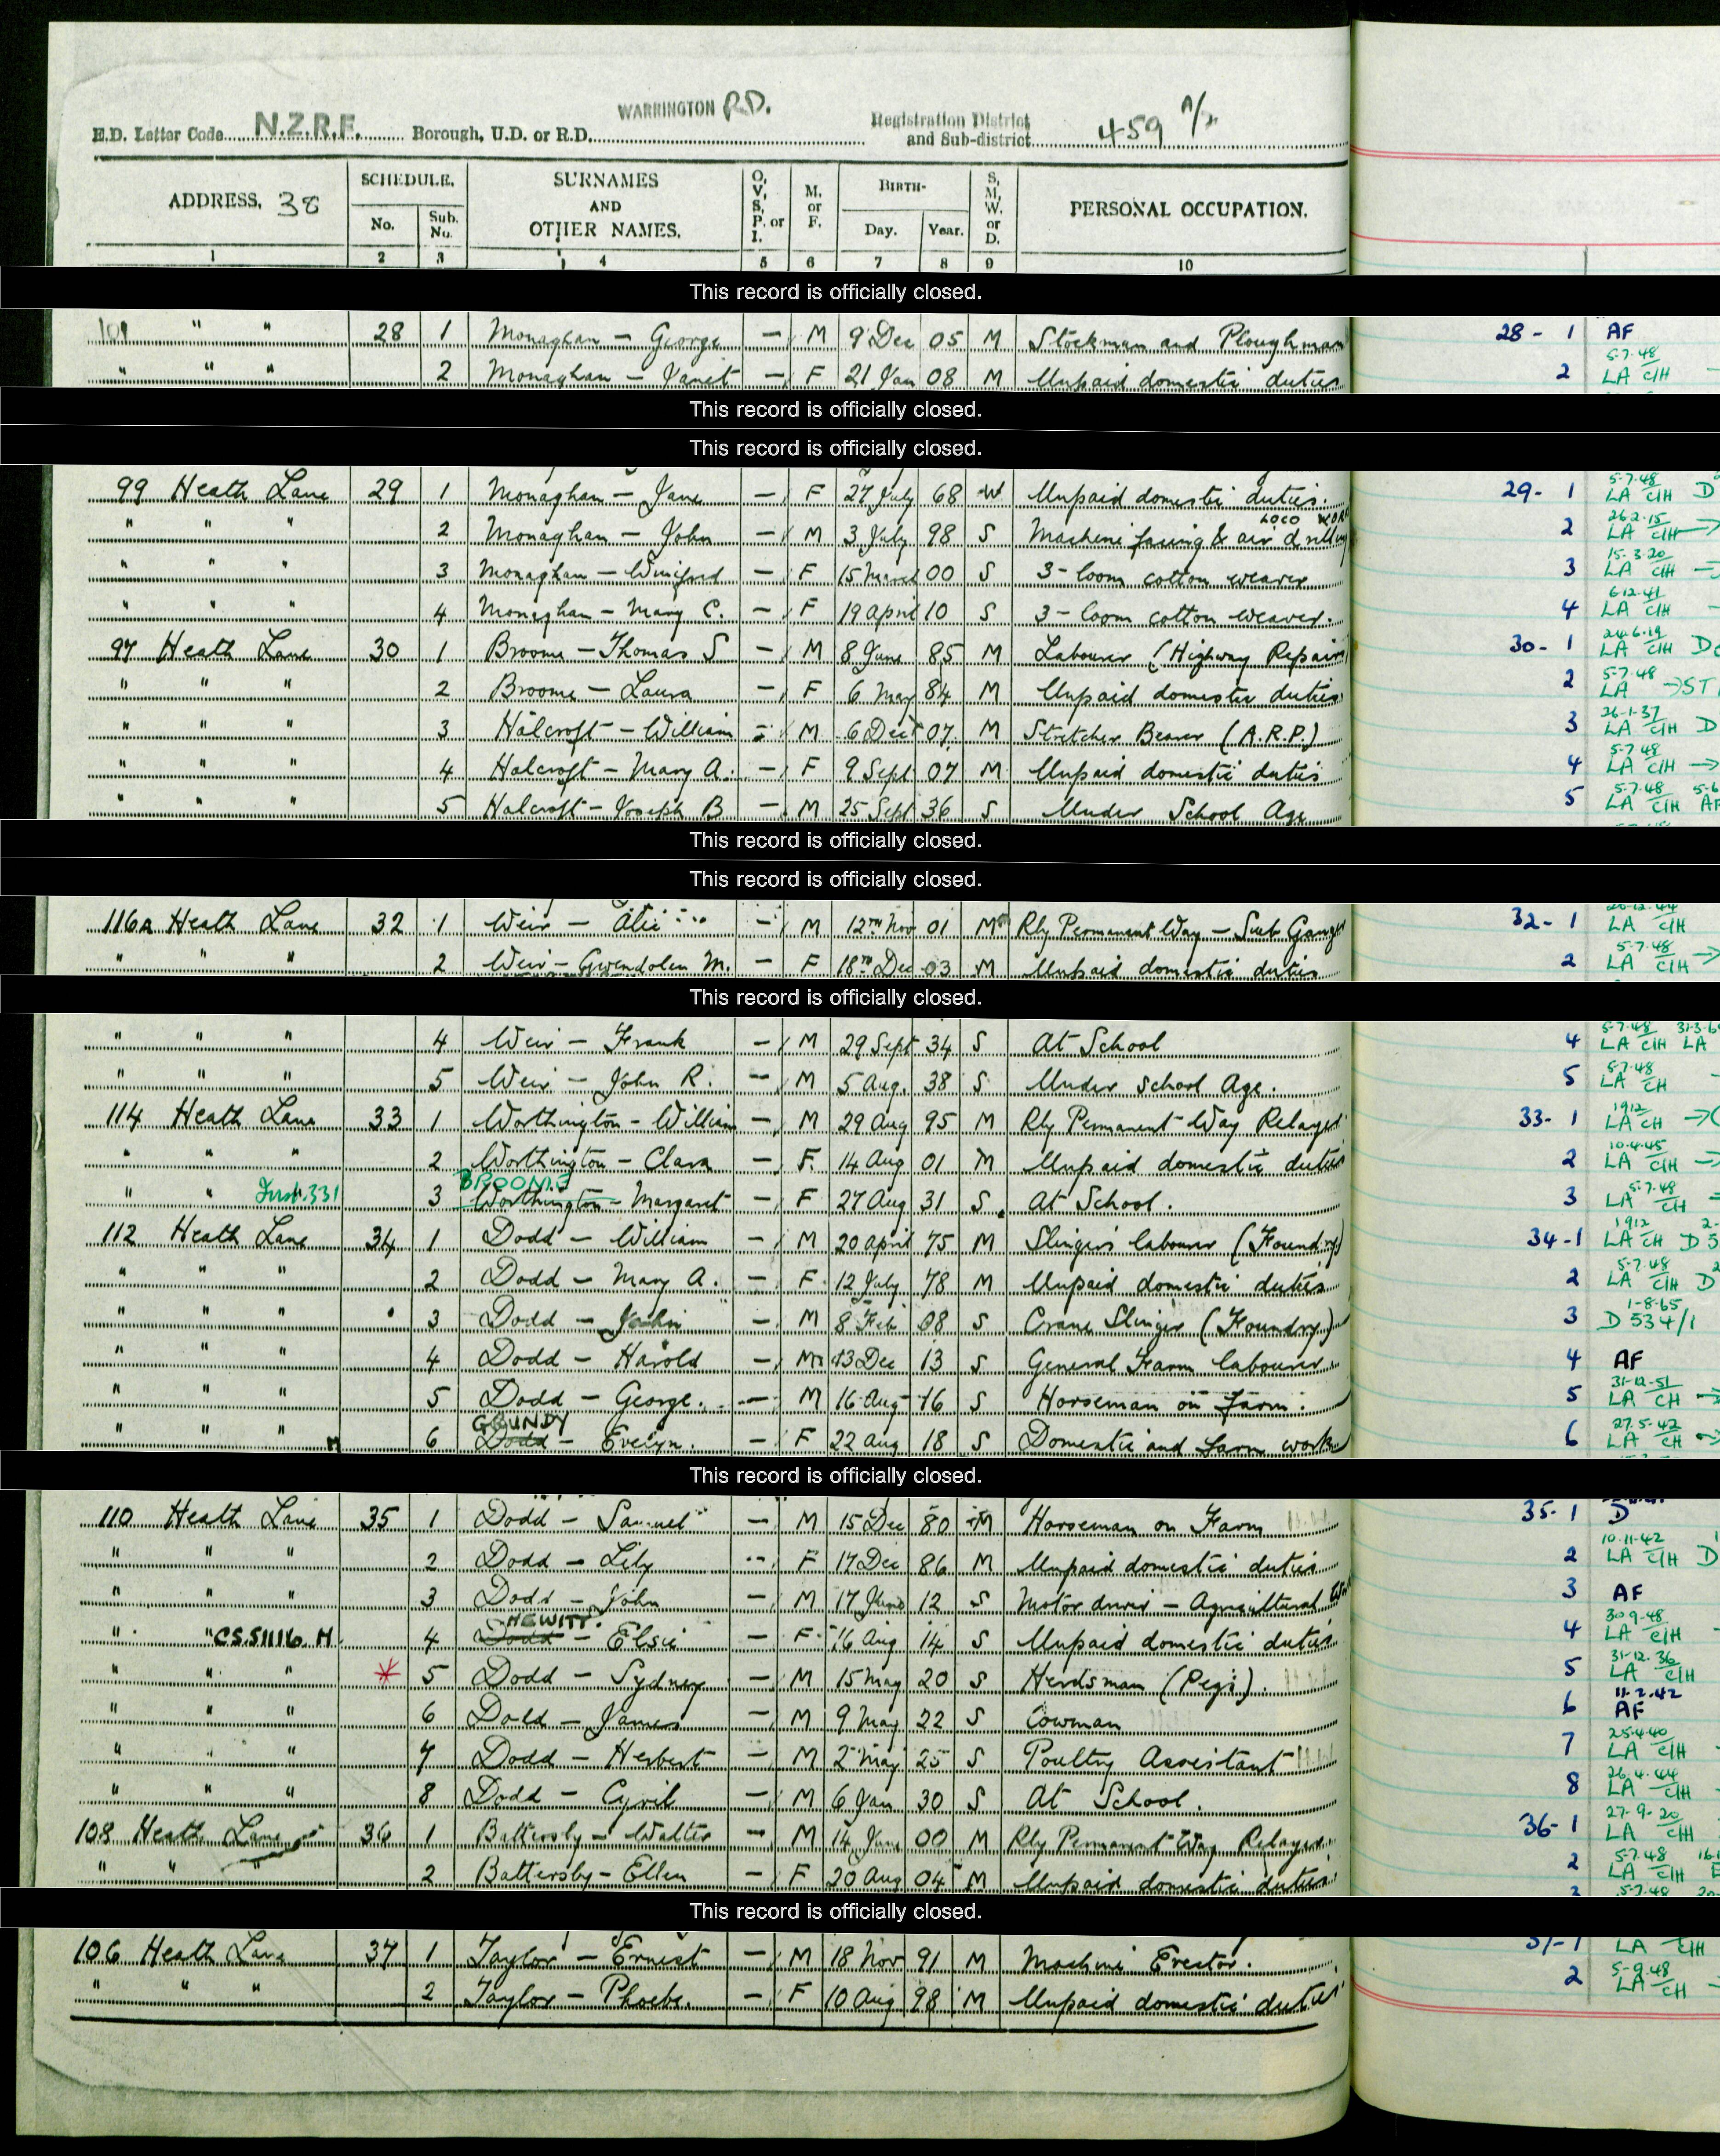 WARRINGTON RD.
E.D. Letter Code N.Z.R.F. Borough, U.D. or R.D. Registration District and Sub-district 459
ADDRESS. 38 SCHEDULE. No. Sub. No. SURNAMES AND OTHER NAMES. O, V, S, P. or I. M. or F. BIRTH- Day. Year. S, M, W. or D. PERSONAL OCCUPATION.
1 2 3 4 5 6 7 8 9 10
This record is officially closed.
101 " " 28 1 Monaghan - George - M 9 Dec 05 M Stockman and Ploughman 28 - 1 AF
" " " 2 Monaghan - Janet - F 21 Jan 08 M Unpaid domestic duties 2 5.7.48 LA CIH
This record is officially closed.
This record is officially closed.
99 Heath Lane 29 1 Monaghan - Jane - F 27 July 68 W Unpaid domestic duties. 29- 1 5.7.48 LA CIH D
" " " 2 Monaghan - John - M 3 July 98 S Machine facing & air drilling LOCO 2 26.2.15 LA CIH
" " " 3 Monaghan - Winifred - F 15 March 00 S 3- loom cotton weaver 3 15.3.20 LA CIH
" " " 4 Monaghan - Mary C. - F 19 April 10 S 3- loom cotton weaver. 4 6.12.41 LA CIH
97 Heath Lane 30 1 Broome - Thomas S - M 8 June 85 M Labourer (Highway Repairs) 30- 1 24.6.19 LA CIH
" " " 2 Broome - Laura - F 6 May 84 M Unpaid domestic duties 2 5.7.48 LA
" " " 3 Halcroft - William - M 6 Dec 07 M Stretcher Bearer (A.R.P.) 3 26.1.37 LA CIH D
" " " 4 Halcroft - Mary A. - F 9 Sept 07 M Unpaid domestic duties 4 5.7.48 LA CIH
" " " 5 Halcroft - Joseph B - M 25 Sept 36 S Under School Age 5 5.7.48 LA CIH
This record is officially closed.
This record is officially closed.
116a Heath Lane 32 1 Weir - - M 12th Nov 01 M Rly Permanent Way - Sub Ganger 32- 1 LA CIH
" " " 2 Weir - Gwendolen M. - F 18th Dec 03 M Unpaid domestic duties 2 5.7.48 LA CIH
This record is officially closed.
" " " 4 Weir - Frank - M 29 Sept 34 S At School 4 5.7.48 LA CIH LA
" " " 5 Weir - John R. - M 5 Aug. 38 S Under School Age. 5 5.7.48 LA CH
114 Heath Lane 33 1 Worthington - William - M 29 Aug 95 M Rly Permanent Way Relayer 33- 1 1912 LA CH
" " " 2 Worthington - Clara - F. 14 Aug 01 M Unpaid domestic duties 2 10.4.45 LA CIH
BROOME
" " 331 3 Worthington - Margaret - F 27 Aug 31 S At School. 3 5.7.48 LA CH
112 Heath Lane 34 1 Dodd - William - M 20 April 75 M Slingers labourer (Foundry) 34-1 1912 LA CH D
" " " 2 Dodd - Mary A. - F 12 July 78 M Unpaid domestic duties 2 5.7.48 LA CIH D
" " " 3 Dodd - John - M 8 Feb 08 S Crane Slinger (Foundry) 3 1-8-65 D 534/1
" " " 4 Dodd - Harold - M 13 Dec 13 S General Farm labourer 4 AF
" " " 5 Dodd - George. - M 16 Aug 16 S Horseman on farm. 5 31-12-51 LA CH
GRUNDY
" " " M 6 Dodd - Evelyn. - F 22 Aug 18 S Domestic and farm work 6 27.5.42 LA CH
This record is officially closed.
110 Heath Lane 35 1 Dodd - Samuel - M 15 Dec 80 M Horseman on Farm 35- 1 D
" " " 2 Dodd - Lily - F 17 Dec 86 M Unpaid domestic duties 2 10.11.42 LA CIH D
" " " 3 Dodd - John - M 17 June 12 S Motor driver - Agricultural 3 AF
HEWITT.
" " CS.51116 M 4 Dodd - Elsie - F 16 Aug 14 S Unpaid domestic duties 4 30.9.48 LA CIH
" " " * 5 Dodd - Sydney - M 15 May 20 S Herdsman (Pigs). 5 31.12.36 LA CIH
" " " 6 Dodd - James - M 9 May 22 S Cowman 6 11.2.42 AF
" " " 7 Dodd - Herbert - M 2 May 25 S Poultry Assistant 7 25.4.40 LA CIH
" " " 8 Dodd - Cyril - M 6 Jan 30 S At School. 8 26.4.44 LA CIH
108 Heath Lane 36 1 Battersby - Walter - M 14 June 00 M Rly Permanent Way Relayer 36-1 27-9-20 LA CIH
" " " 2 Battersby - Ellen - F 20 Aug 04 M Unpaid domestic duties 2 5.7.48 LA CIH
This record is officially closed.
106 Heath Lane 37 1 Taylor - Ernest - M 18 Nov 91 M Machine Erector. 37-1 LA CIH
" " " 2 Taylor - Phoebe. - F 10 Aug 98 M Unpaid domestic duties 2 5-9.48 LA CH